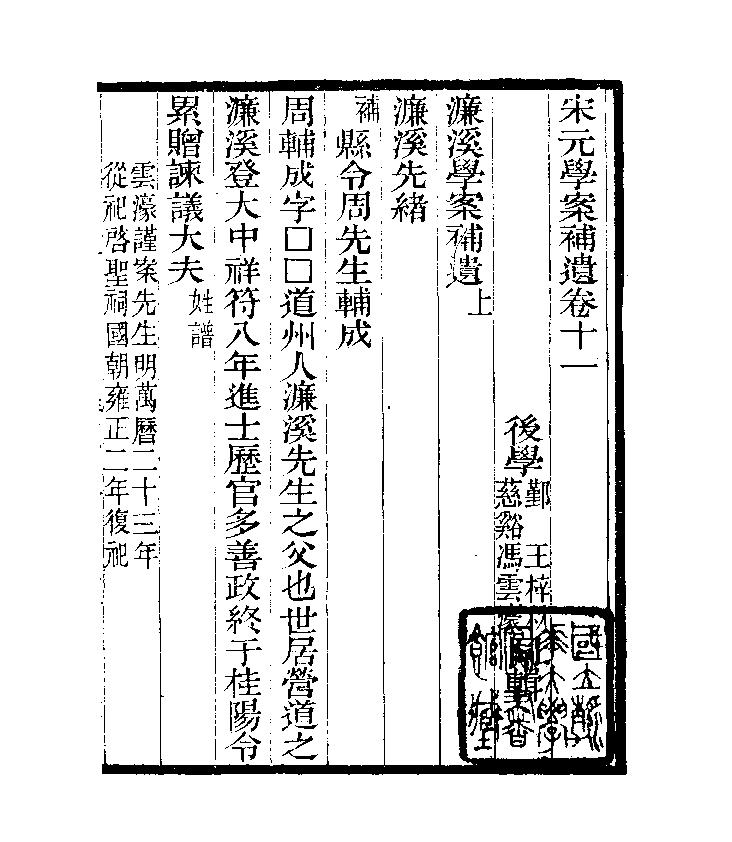 宋元學案補遺卷十一
後學
鄞 王梓
慈谿馮雲濠
輯
濂溪學案補遺上
濂溪先緒
補縣令周先生輔成
周輔成字囗囗道州人濂溪先生之父也世居營道之
濂溪登大中祥符八年進士歷官多善政終于桂陽令
累贈諫議大夫姓譜
雲濠謹案先生明萬曆二十三年
從祀啓聖祠國朝雍正二年復祀